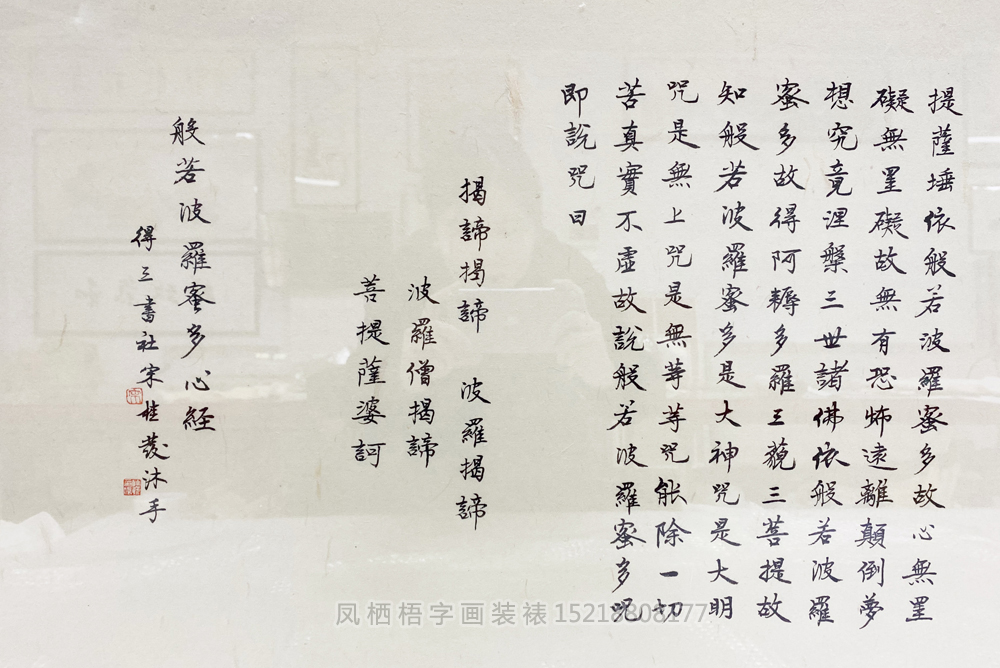 提薩埵依般若波羅蜜多故心無罣
礙無罣礙故無有恐怖遠離顛倒夢
想究竟涅槃三世諸佛依般若波羅
蜜多故得阿耨多羅三藐三菩提故
知般若波羅蜜多是大神咒是大明
咒是無上咒是無等等咒能除一切
苦真實不虛故說般若波羅蜜多咒
即說咒曰
揭諦揭諦 波羅揭諦
波羅僧揭諦
菩提薩婆訶
般若波羅蜜多心経
得三書社宋桂發沐手
凤栖梧字画装裱 15218808177